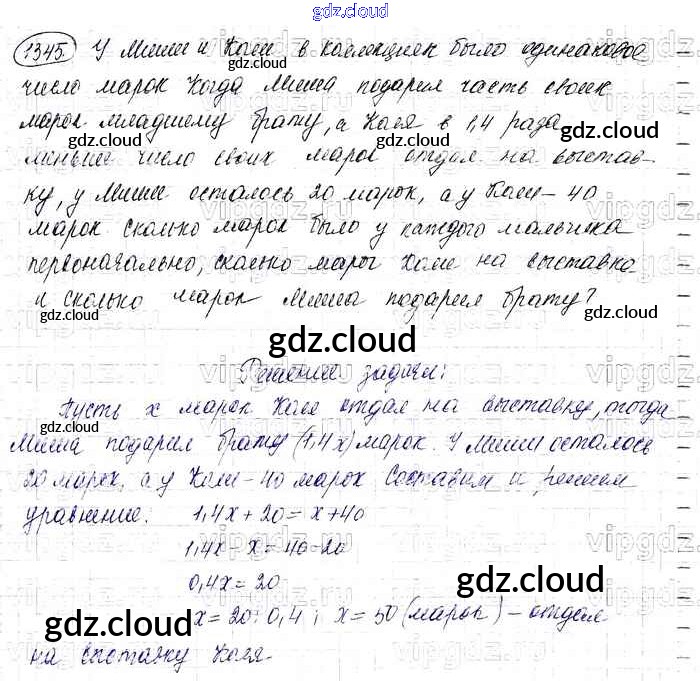 gdz.cloud
1345. У Миши и Коли в коллекциях было одинаковое
число марок Когда Миша подарил часть своих
марок младшему брату, а Коля в 1,4 раза
меньше число своих марок отдал на выстав-
ку, у Миши осталось 20 марок, а у Коли - 40
марок. сколько марок было у каждого мальчика
первоначально, сколько марок Коли на выставке
и сколько марок Миша подарил брату?
gdz.cloud
Решение задачи:
Пусть х марок Коля отдал на выставку, тогда
Миша подарил брату (1,4х) марок. У Миши осталось
20 марок, а у Коли - 40 марок Составим и решим
уравнение. 1,4х + 20 = х + 40
1,4х - х = 40 - 20
0,4х = 20
х = 20 : 0,4 ; х = 50 (марок) - отдал
на выставку Коля.
gdz.cloud
vipgdz.ru